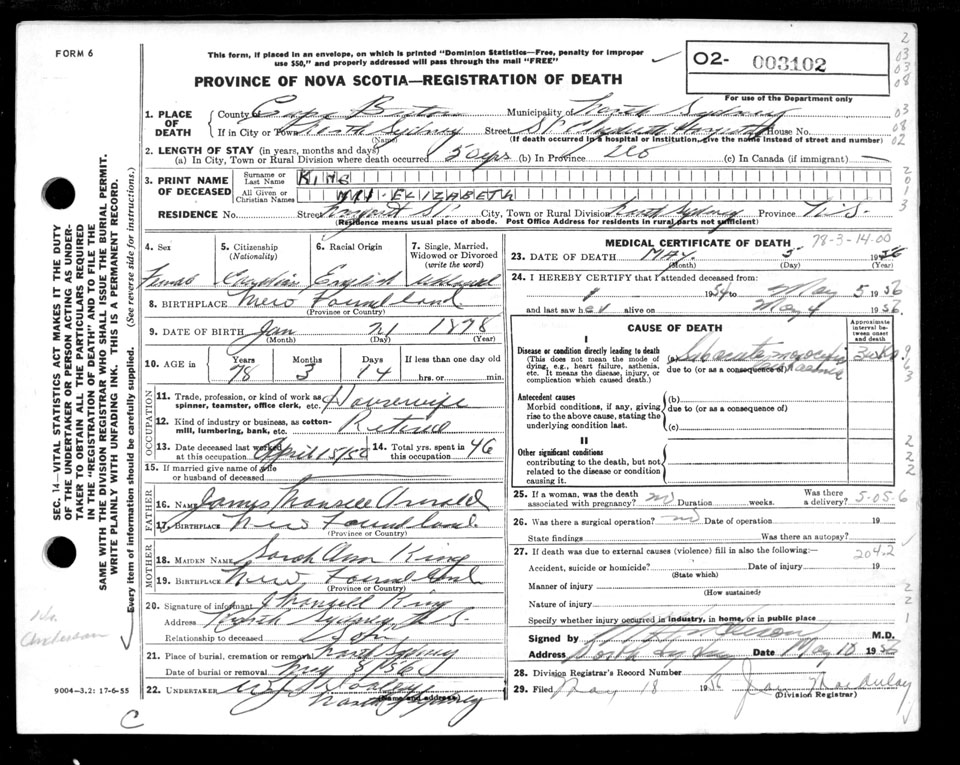 FORM 6
This form, if placed in an envelope, on which is printed "Dominion Statistics—Free, penalty for improper
use $50," and properly addressed will pass through the mail "FREE"
02- 003102
PROVINCE OF NOVA SCOTIA—REGISTRATION OF DEATH
For use of the Department only
1. PLACE OF DEATH
County Cape Breton Municipality of North Sydney
If in City or Town North Sydney Street St Elizabeth Hospital House No.
(Name) (If death occurred in a hospital or institution, give the name instead of street and number)
2. LENGTH OF STAY (in years, months and days)
(a) In City, Town or Rural Division where death occurred 50 yrs (b) In Province Do (c) In Canada (if immigrant) —
3. PRINT NAME OF DECEASED
Surname or Last Name KING
All Given or Christian Names MRS. ELIZABETH
RESIDENCE No. Street Regent St. City, Town or Rural Division North Sydney Province N.S.
(Residence means usual place of abode. Post Office Address for residents in rural parts not sufficient)
4. Sex Female
5. Citizenship (Nationality) Canadian
6. Racial Origin English
7. Single, Married, Widowed or Divorced (write the word) Widowed
8. BIRTHPLACE New Foundland
(Province or Country)
9. DATE OF BIRTH Jan 21 1878
(Month) (Day) (Year)
10. AGE Years 78 Months 3 Days 14 If less than one day old
hrs. or min.
OCCUPATION
11. Trade, profession, or kind of work as spinner, teamster, office clerk, etc. Housewife
12. Kind of industry or business, as cotton-mill, lumbering, bank, etc. Retired
13. Date deceased last worked at this occupation April 15/56 14. Total yrs. spent in this occupation 46
15. If married give name of wife or husband of deceased
FATHER
16. NAME James Mansell Arnold
17. BIRTHPLACE New Foundland
(Province or Country)
MOTHER
18. MAIDEN NAME Sarah Ann King
19. BIRTHPLACE New Foundland
(Province or Country)
20. Signature of informant J Mansell King
Address North Sydney N.S.
Relationship to deceased Son
21. Place of burial, cremation or removal North Sydney
Date of burial or removal May 8/56
22. UNDERTAKER
North Sydney
(Name and address)
MEDICAL CERTIFICATE OF DEATH
78-3-14-00
23. DATE OF DEATH May 5 1956
(Month) (Day) (Year)
24. I HEREBY CERTIFY that I attended deceased from:
1954 to May 5 1956
and last saw her alive on May 4 1956.
CAUSE OF DEATH
Approximate interval between onset and death
I
Disease or condition directly leading to death
(This does not mean the mode of dying, e.g., heart failure, asthenia, etc. It means the disease, injury, or complication which caused death.)
(a) Subacute
due to (or as a consequence of)
3 wks
Antecedent causes
Morbid conditions, if any, giving rise to the above cause, stating the underlying condition last.
(b)
due to (or as a consequence of)
(c)
II
Other significant conditions
contributing to the death, but not related to the disease or condition causing it.
25. If a woman, was the death associated with pregnancy? no Duration weeks. Was there a delivery?
5-05-6
26. Was there a surgical operation? no Date of operation 19
State findings Was there an autopsy?
27. If death was due to external causes (violence) fill in also the following:—
204.2
Accident, suicide or homicide? Date of injury 19
(State which)
Manner of injury
(How sustained)
Nature of injury
Specify whether injury occurred in industry, in home, or in public place
Signed by M.D.
Address North Sydney Date May 18 1956
28. Division Registrar's Record Number
29. Filed May 18 1956
(Division Registrar)
SEC. 14—VITAL STATISTICS ACT MAKES IT THE DUTY
OF THE UNDERTAKER OR PERSON ACTING AS UNDER-
TAKER TO OBTAIN ALL THE PARTICULARS REQUIRED
IN THE "REGISTRATION OF DEATH" AND TO FILE THE
SAME WITH THE DIVISION REGISTRAR WHO SHALL ISSUE THE BURIAL PERMIT.
WRITE PLAINLY WITH UNFADING INK. THIS IS A PERMANENT RECORD.
Every item of information should be carefully supplied. (See reverse side for instructions.)
Dr.
Anderson
9004-3.2: 17-6-55
C